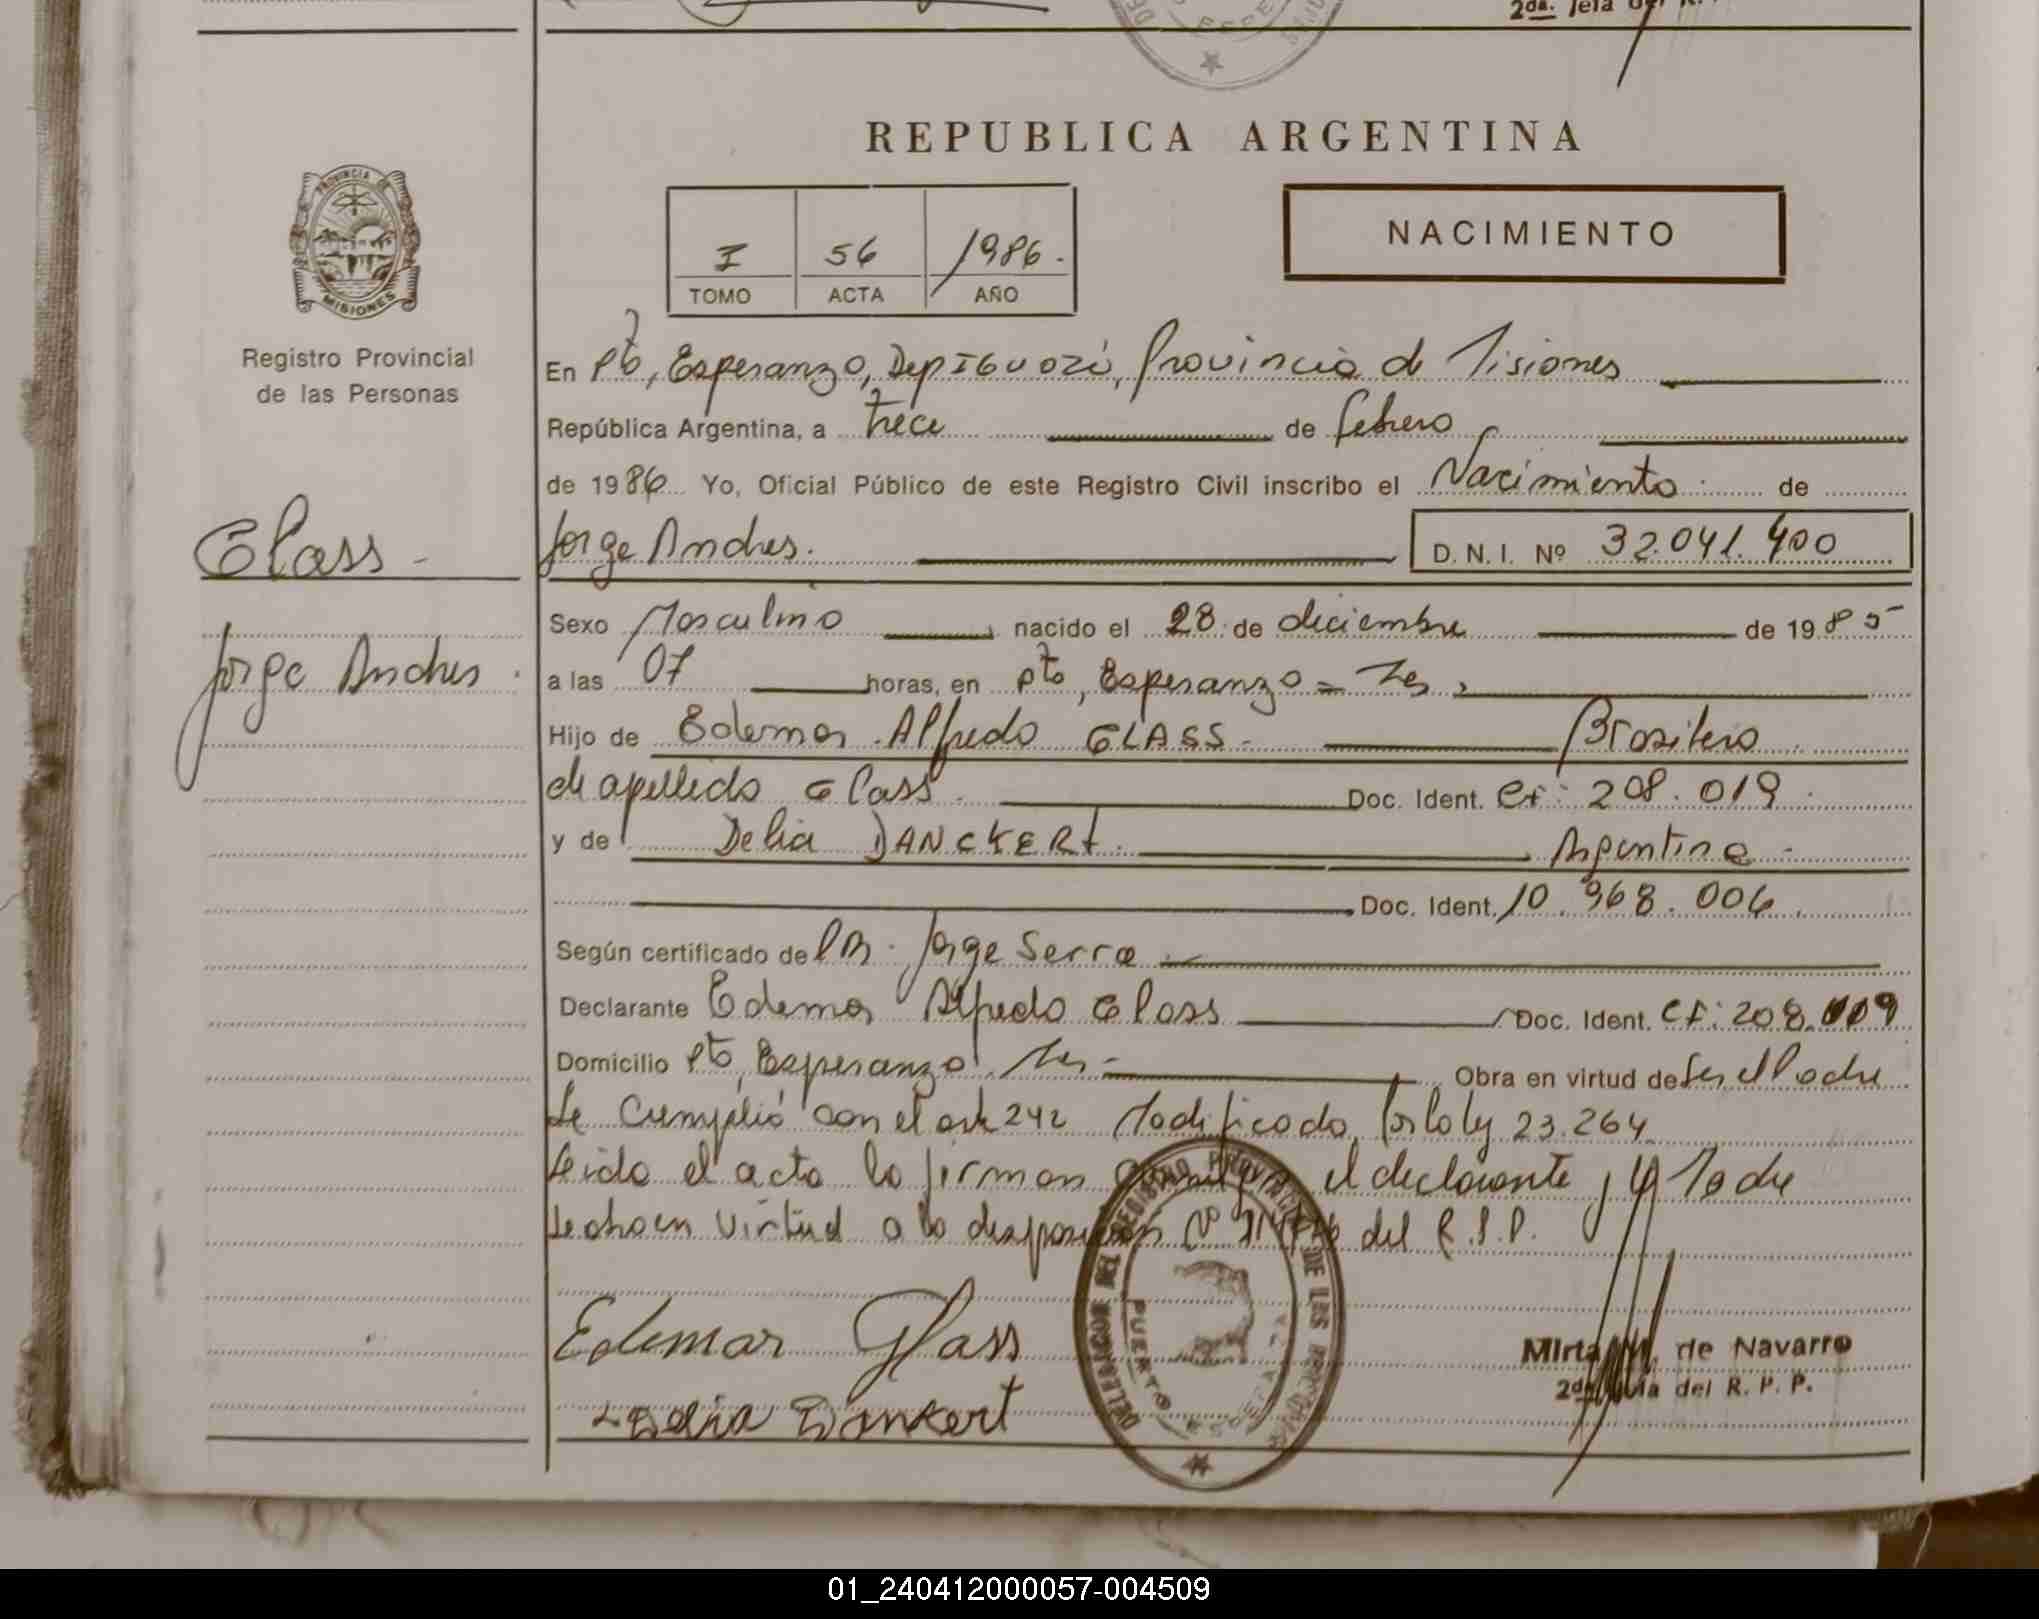 2da. Jefa del R.
REPUBLICA ARGENTINA
PROVINCIA DE
MISIONES
Registro Provincial
de las Personas
I 56 1986.
TOMO ACTA AÑO
NACIMIENTO
En Pto, Esperanza, Dep IGuazú, Provincia de Misiones
República Argentina, a trece de febrero
de 1986 Yo, Oficial Público de este Registro Civil inscribo el Nacimiento de
Glass
Jorge Andres. D. N. I. Nº 32.041.400
Jorge Andres
Sexo Masculino nacido el 28 de diciembre de 1985
a las 07 horas, en Pto, Esperanza = Mes,
Hijo de Edemar Alfredo GLASS. Brasilero
de apellido Glass. Doc. Ident. CI: 208.019
y de Delia DANCKERt. Argentina
Doc. Ident. 10.968.006
Según certificado de Dr. Jorge Serra
Declarante Edemar Alfredo Glass Doc. Ident. CI: 208.019
Domicilio Pto, Esperanza Mes Obra en virtud de Ser, el Padre
Se Cumplió con el art 242 Modificado, por la ley 23.264
Leida el acta la firman el declarante y la Madre
del R.P.P.
Edemar Glass
Delia Dankert
DELEGACION DEL REGISTRO PROVINCIAL DE LAS PERSONAS
PUERTO ESPERANZA
Mirta M. de Navarro
2da. Jefa del R. P. P.
01_240412000057-004509